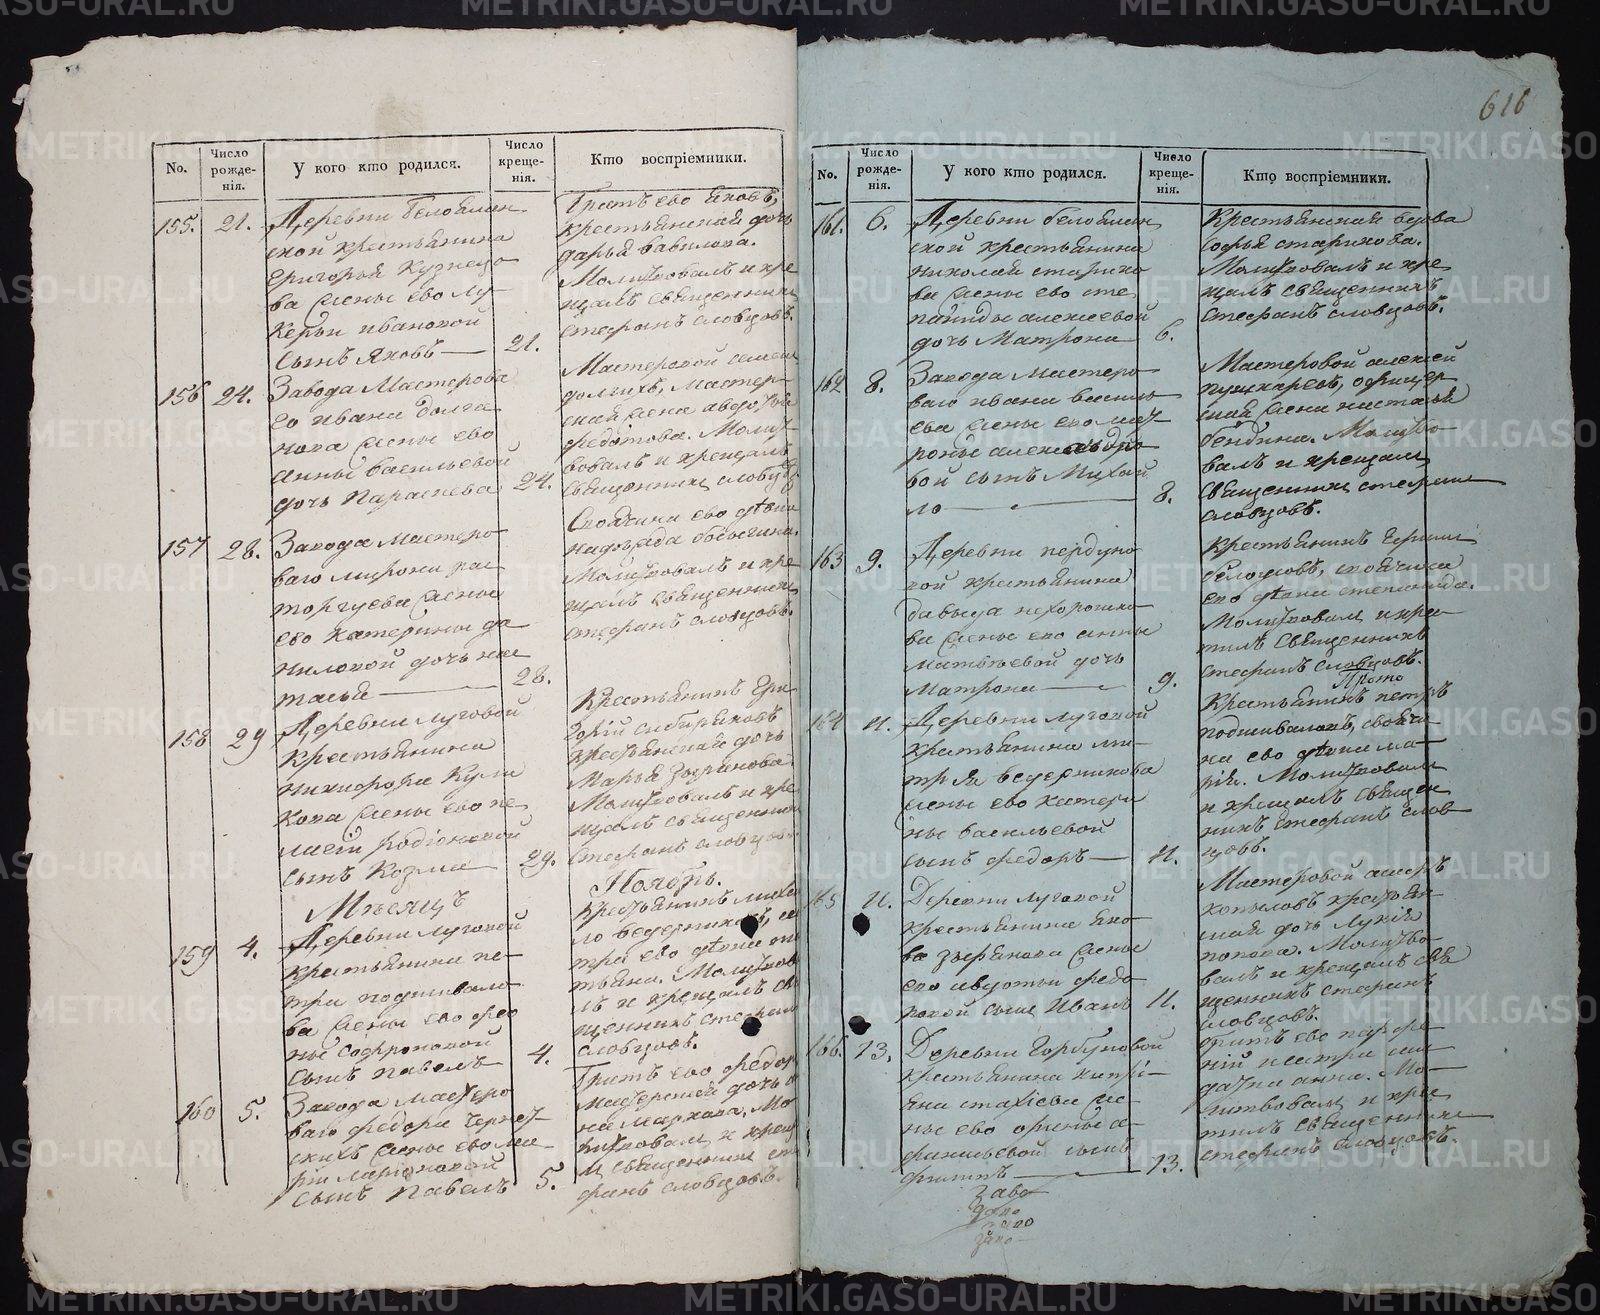 616
No.
Число рожде-нія.
У кого кто родился.
Число креще-нія.
Кто воспріемники.
155.
21.
Деревни Белоелан
ской крестьянина
Григорья Кузнецо
ва жены ево лу
керьи ивановой
сынъ Яковъ
21.
Братъ ево Яковъ,
крестьянская дочь
дарья вавилова.
Молитвовалъ и кре
щалъ священникъ
стефанъ словцовъ.
156
24.
Завода Мастерова
го ивана долга
нова жены ево
анны васильевой
дочь Параскева
24.
Мастеровой
долгихъ, мастер
ская жена авдотья
федотова. Молит
вовалъ и крещалъ
священникъ словцовъ
157
28.
Завода мастеро
ваго мирона рас
торгуева жены
ево катерины да
ниловой дочь нас
тасья
28.
ево
Молитвовалъ и кре
щалъ священникъ
стефанъ словцовъ.
158
29
Деревни луговой
крестьянина
никифора кули
кова жены ево пе
лагіи родіоновой
сынъ Козма
29.
Крестьянинъ Гри
горій сибиряковъ
крестьянская дочь
Марья зырянова.
Молитвовалъ и кре
щалъ священникъ
стефанъ словцовъ.
Мѣсяцъ
Ноябрь.
159
4.
Деревни луговой
крестьянина пе
тра подшивало
ва жены ево фео
ны софроновой
сынъ павелъ
4.
Крестьянинъ михай
ло ведерниковъ, сес
тра ево дѣвка та
тьяна. Молитвова
лъ и крещалъ свя
щенникъ стефанъ
словцовъ.
160
5.
Завода мастеро
ваго федора черног
скихъ жены ево ма
ріи ларіоновой
сынъ Павелъ
5.
Братъ ево федоръ
мастерской дочь
маркова. Мо
литвовалъ и крещал
ъ священникъ сте
фанъ словцовъ.
No.
Число рожде-нія.
У кого кто родился.
Число креще-нія.
Кто воспріемники.
161.
6.
Деревни белоелан
ской крестьянина
николая старико
ва жены ево сте
паниды алексеевой
дочь Матрона
6.
Крестьянская вдова
софья старикова.
Молитвовалъ и кре
щалъ священникъ
стефанъ словцовъ.
162
8.
Завода мастеро
ваго ивана василь
ева жены ево мат
роны александро
вой сынъ Михай
ло
8.
Мастеровой алексей
пушкаревъ, офицер
ская жена настасья
бендина. Молитво
валъ и крещалъ
священникъ стефанъ
словцовъ.
163
9.
Деревни пердуно
вой крестьянина
давыда нехороших
ва жены ево анны
матвѣевой дочь
Матрона
9.
Крестьянинъ
белоусовъ, своячина
ево дѣвка степанида.
Молитвовалъ и кре
тилъ священникъ
стефанъ словцовъ.
164
11.
Деревни луговой
крестьянина ми
трія ведерникова
жены ево катери
ны васильевой
сынъ федоръ
11.
Крестьянинъ петръ
подшиваловъ, своячи
на ево дѣвка ма
рія. Молитвовалъ
и крещалъ священ
никъ стефанъ слов
цовъ.
165
11.
Деревни луговой
крестьянина яко
ва зырянова жены
ево авдотьи федо
ровой сынъ Иванъ
11.
Мастеровой
копыловъ крестьян
ская дочь лукія
попова. Молитво
валъ и крещалъ свя
щенникъ стефанъ
словцовъ.
166.
13.
Деревни Горбуновой
крестьянина кипрі
яна стахіева же
ны ево орины а
фанасьевой сынъ
филипъ
13.
братъ ево парфе
ній и сестра сол
датка анна. Мо
литвовалъ и кре
тилъ священникъ
стефанъ словцовъ.